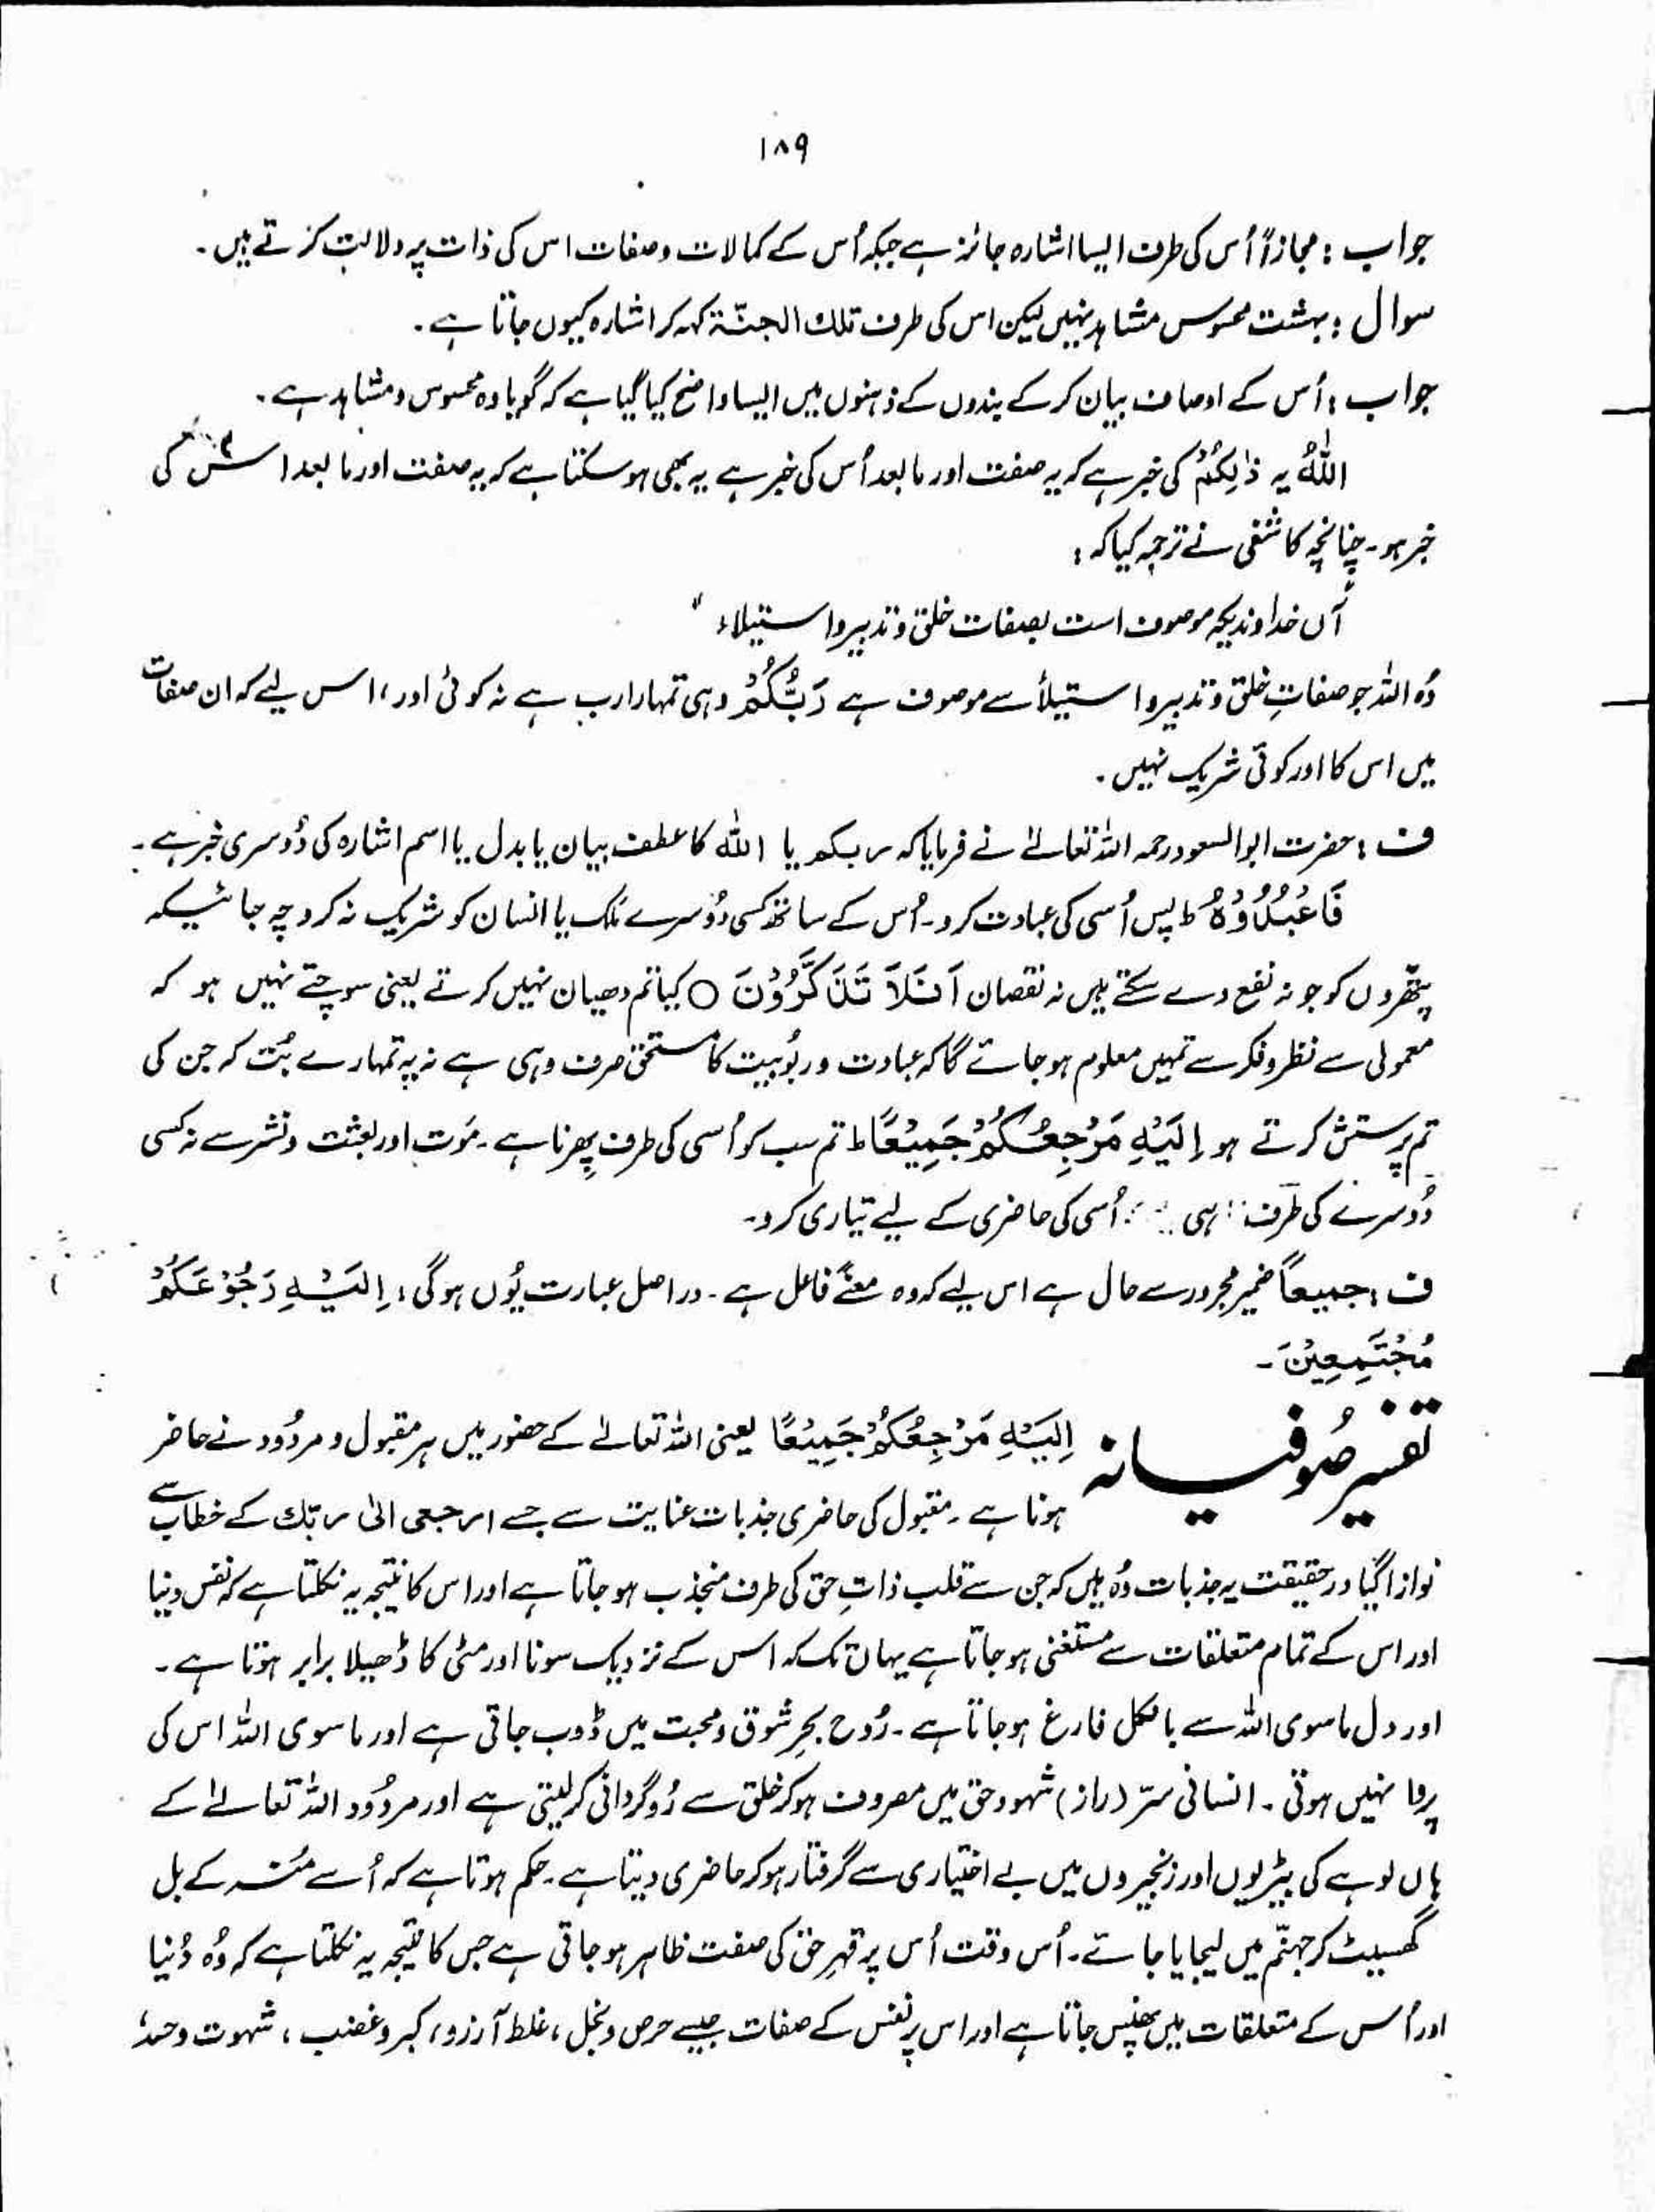 ۱۸۹
جواب : مجازاً اُس کی طرف ایسا اشارہ جائز ہے جبکہ اُس کے کمالات و صفات اس کی ذات پر دلالت کرتے ہیں۔
سوال : بہشت محسوس مشاہد نہیں لیکن اس کی طرف تلك الجنّة کہہ کر اشارہ کیوں جاتا ہے۔
جواب : اُس کے اوصاف بیان کر کے بندوں کے ذہنوں میں ایسا واضح کیا گیا ہے کہ گویا وہ محسوس و مشاہد ہے۔
اللّٰهُ یہ ذٰلِكُمْ کی خبر ہے کہ یہ صفت اور مابعد اُس کی خبر ہے یہ بھی ہو سکتا ہے کہ یہ صفت اور مابعد اس کی
خبر ہو۔ چنانچہ کاشفی نے ترجمہ کیا کہ :
آں خداوندیکہ موصوف است بصفات خلق و تدبیر و استیلاء "
وُہ اللہ جو صفاتِ خلق و تدبیر و استیلأ سے موصوف ہے رَبُّكُمْ وہی تمہارا رب ہے نہ کوئی اور، اس لیے کہ ان صفات
میں اس کا اور کوئی شریک نہیں۔
ف : حضرت ابوالسعود رحمہ اللہ تعالےٰ نے فرمایا کہ ربکم یا اللّٰہ کا عطف بیان یا بدل یا اسم اشارہ کی دُوسری خبر ہے۔
فَاعْبُدُوْهُ ط پس اُسی کی عبادت کرو۔ اُس کے ساتھ کسی دُوسرے مَلک یا انسان کو شریک نہ کرو چہ جائیکہ
پتھروں کو جو نہ نفع دے سکتے ہیں نہ نقصان اَفَلَا تَذَكَّرُوْنَ ○ کیا تم دھیان نہیں کرتے یعنی سوچتے نہیں ہو کہ
معمولی سے نظر و فکر سے تمہیں معلوم ہو جائے گا کہ عبادت و ربُوبیت کا مستحق صرف وہی ہے نہ یہ تمہارے بُت کہ جن کی
تم پرستش کرتے ہو اِلَيْهِ مَرْجِعُكُمْ جَمِيْعًا ط تم سب کو اُسی کی طرف پِھرنا ہے۔ مَوت اور بعثت و نشر سے نہ کسی
دُوسرے کی طرف اُسی کی حاضری کے لیے تیاری کرو۔
ف : جمیعاً ضمیر مجرور سے حال ہے اس لیے کہ وہ معنےً فاعل ہے۔ دراصل عبارت یُوں ہوگی : اِلَيْهِ رُجُوْعُكُمْ
مُجْتَمِعِيْنَ۔
تفسیر صُوفیانہ اِلَيْهِ مَرْجِعُكُمْ جَمِيْعًا یعنی اللہ تعالےٰ کے حضور میں ہر مقبول و مردُود نے حاضر
ہونا ہے۔ مقبول کی حاضری جذبات عنایت سے جسے ارجعی الیٰ ربك کے خطاب سے
نوازا گیا درحقیقت یہ جذبات وُہ ہیں کہ جن سے قلب ذاتِ حق کی طرف منجذب ہو جاتا ہے اور اس کا نتیجہ یہ نکلتا ہے کہ نفس دنیا
اور اس کے تمام متعلقات سے مستغنی ہو جاتا ہے یہاں تک کہ اس کے نزدیک سونا اور مٹی کا ڈھیلا برابر ہوتا ہے۔
اور دل ماسوی اللہ سے بالکل فارغ ہو جاتا ہے۔ رُوح بحرِ شوق و محبت میں ڈوب جاتی ہے اور ماسوی اللہ اس کی
پروا نہیں ہوتی۔ انسانی سرّ (راز) شہود حق میں مصروف ہو کر خلق سے رُوگردانی کر لیتی ہے اور مردُود اللہ تعالےٰ کے
ہاں لوہے کی بیڑیوں اور زنجیروں میں بے اختیاری سے گرفتار ہو کر حاضری دیتا ہے۔ حکم ہوتا ہے کہ اُسے مُنہ کے بل
گھسیٹ کر جہنّم میں لیجایا جائے۔ اُس وقت اُس پر قہرِ حق کی صفت ظاہر ہو جاتی ہے جس کا نتیجہ یہ نکلتا ہے کہ وُہ دُنیا
اور اُس کے متعلقات میں پھنس جاتا ہے اور اس پر نفس کے صفات جیسے حرص و بخل، غلط آرزو، کبر و غضب، شہوت و حسد،